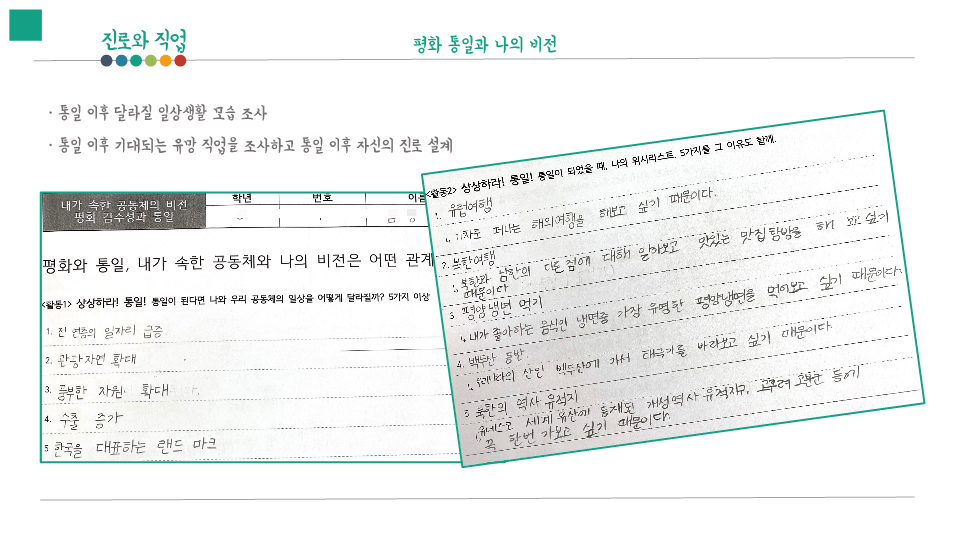 진로와 직업
평화 통일과 나의 비전
· 통일 이후 달라질 일상생활 모습 조사
· 통일 이후 기대되는 유망 직업을 조사하고 통일 이후 자신의 진로 설계
내가 속한 공동체의 비전
평화 감수성과 통일
학년 번호 이름
평화와 통일, 내가 속한 공동체와 나의 비전은 어떤 관계
<활동1> 상상하라! 통일! 통일이 된다면 나와 우리 공동체의 일상을 어떻게 달라질까? 5가지 이상
1. 전 연층의 일자리 급증
2. 관광자연 확대
3. 풍부한 자원 확대
4. 수출 증가
5 한국을 대표하는 랜드 마크
<활동2> 상상하라! 통일! 통일이 되었을 때, 나의 위시리스트. 5가지를 그 이유도 함께.
1. 유럽여행
떠나는 해외여행을 해보고 싶기 때문이다.
2. 북한여행
북한과 남한의 다른 점에 대해 알아보고 맛있는 맛집탐방을 해 보고 싶기
때문이다
3. 평양냉면 먹기
내가 좋아하는 음식인 냉면중 가장 유명한 평양냉면을 먹어보고 싶기 때문이다.
4. 백두산 등반
산인 백두산에 가서 태극기를 바라보고 싶기 때문이다.
5 북한의 역사 유적지
유네스코 세계유산에 등재된 개성역사유적지구, 등에
꼭 한번 가보고 싶기 때문이다.